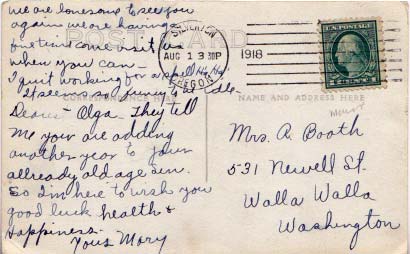 we are lonesome to see you
again we are having a
fine time come visit us
when you can -
I quit working for a spell Ha Ha
It seems so funny to idle.
Dearest Olga. They tell
me your are adding
another year to your
allready old age sum.
So I'm here to wish you
good luck health &
Happiness.
Yous Mary
POST CARD
CORRESPONDENCE HERE
NAME AND ADDRESS HERE
SILVERTON
AUG 1 3 30P
OREGON
1918
U.S. POSTAGE
Mrs. A. Booth
531 Newell St.
Walla Walla
Washington